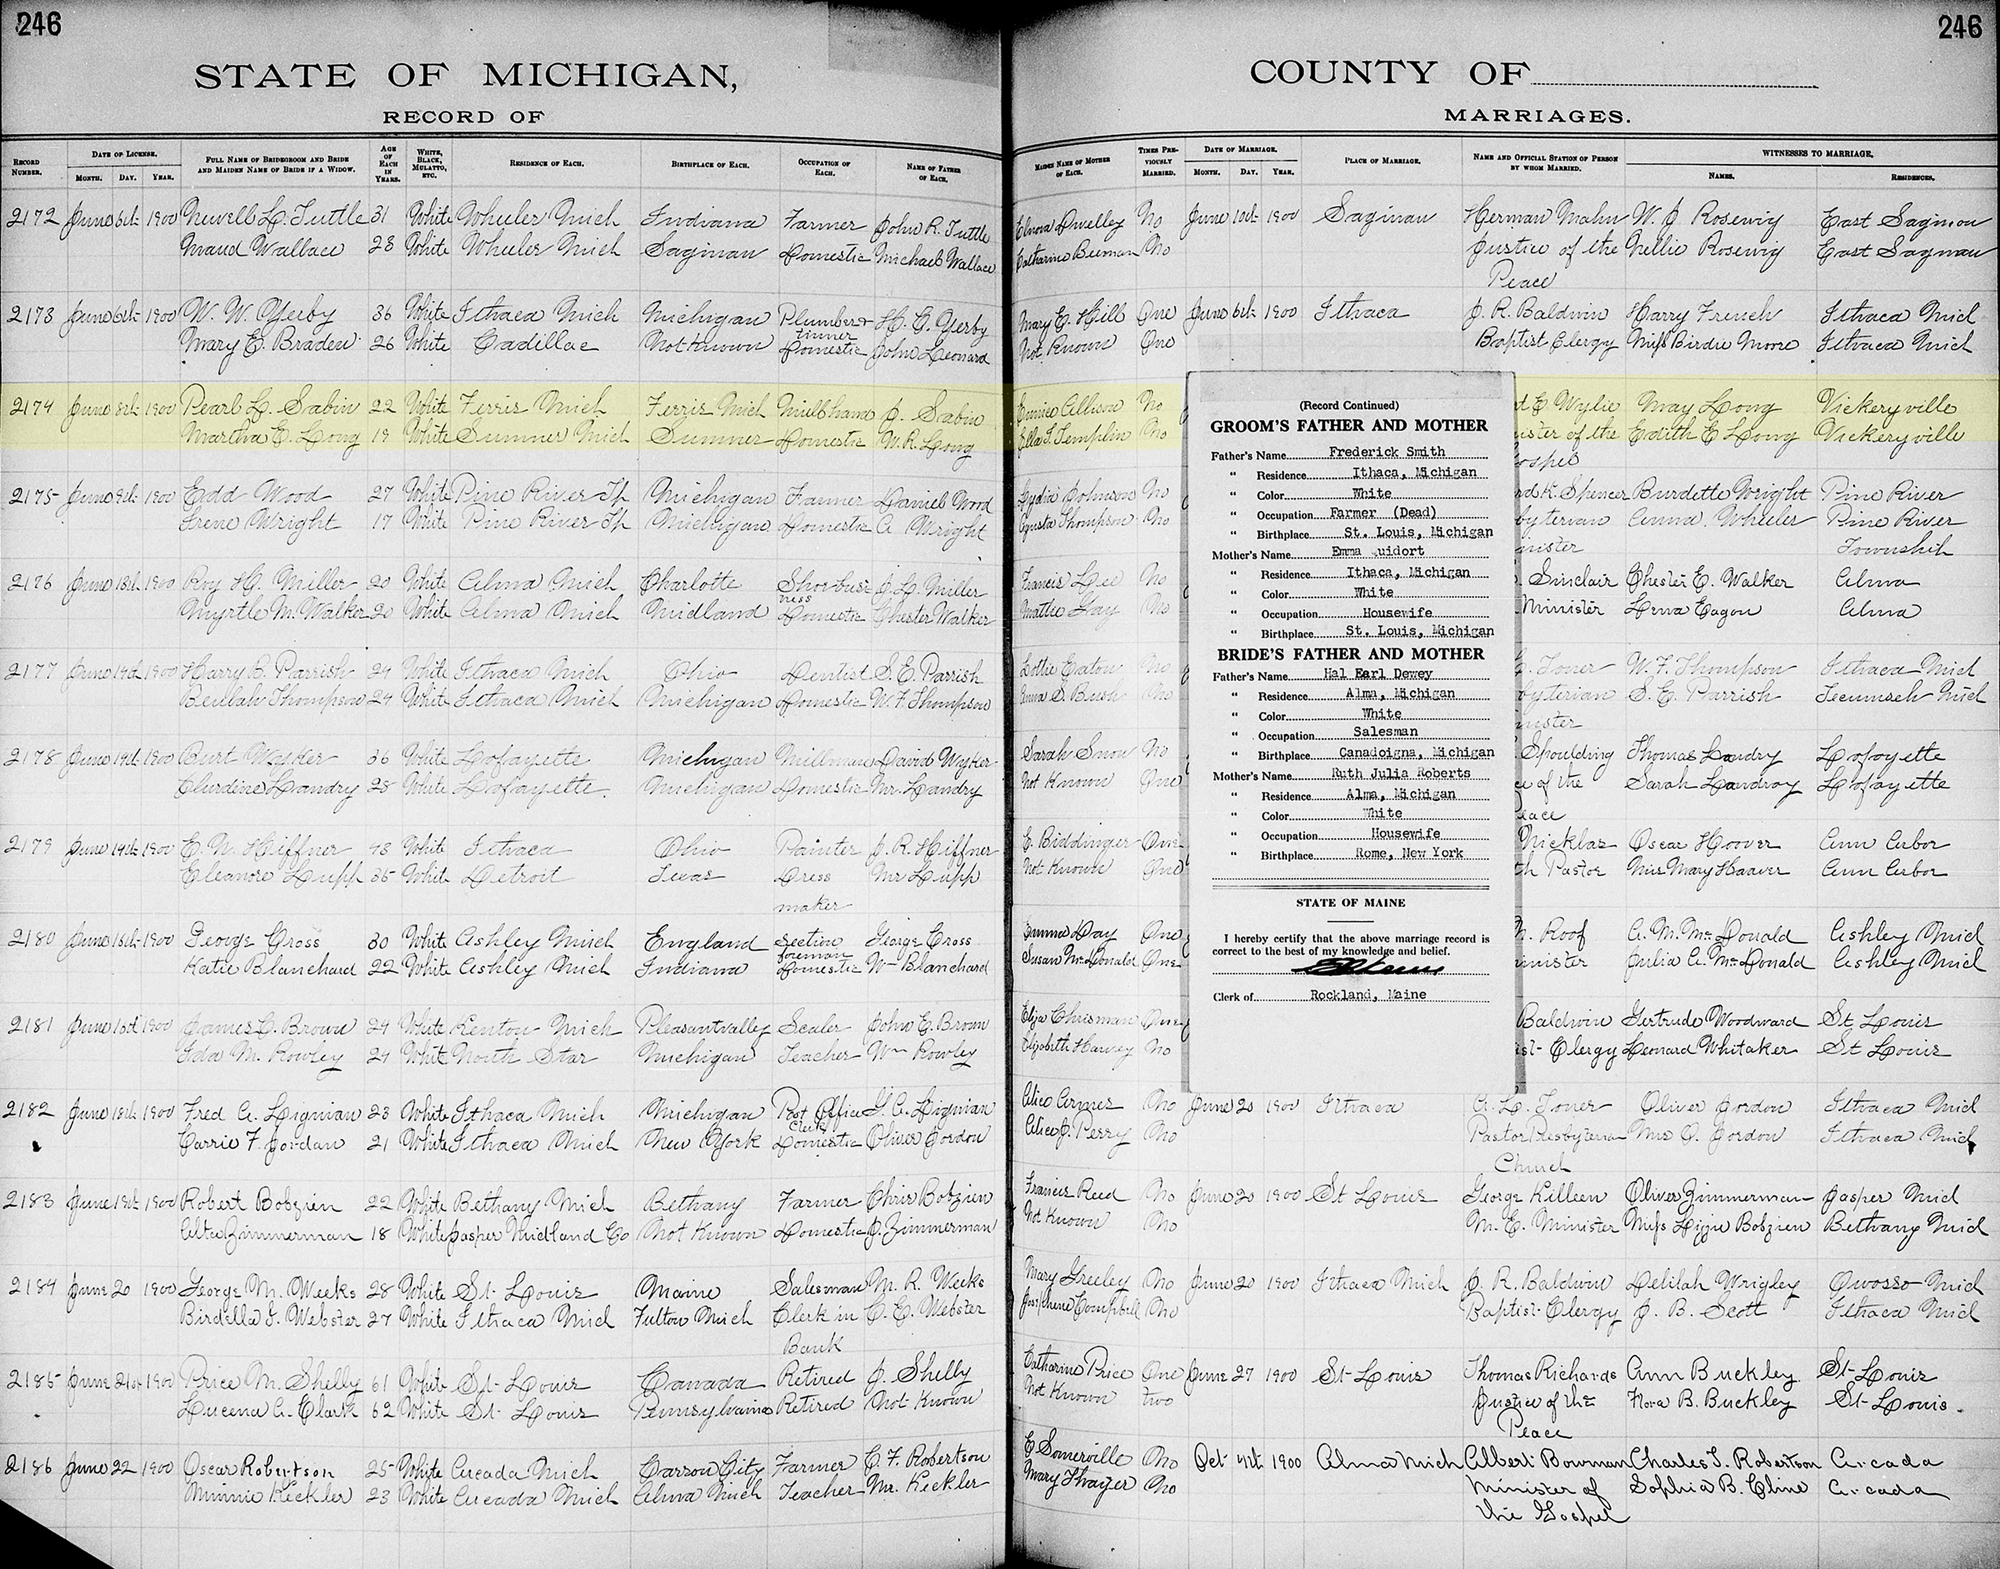 246
246
STATE OF MICHIGAN,
COUNTY OF
RECORD OF
MARRIAGES.
RECORD NUMBER.
DATE OF LICENSE.
MONTH. DAY. YEAR.
FULL NAME OF BRIDEGROOM AND BRIDE AND MAIDEN NAME OF BRIDE IF A WIDOW.
AGE OF EACH IN YEARS.
WHITE, BLACK, MULATTO, ETC.
RESIDENCE OF EACH.
BIRTHPLACE OF EACH.
OCCUPATION OF EACH.
NAME OF FATHER OF EACH.
MAIDEN NAME OF MOTHER OF EACH.
TIMES PREVIOUSLY MARRIED.
DATE OF MARRIAGE.
MONTH. DAY. YEAR.
PLACE OF MARRIAGE.
NAME AND OFFICIAL STATION OF PERSON BY WHOM MARRIED.
WITNESSES TO MARRIAGE.
NAMES. RESIDENCES.
2172 June 6th 1900 Newell L. Tuttle 31 White Wheeler Mich Indiana Farmer John R. Tuttle Elnora Dwelley No June 10th 1900 Saginaw Herman Mahn W. J Rosewig East Saginaw
Maud Wallace 28 White Wheeler Mich Saginaw Domestic Michael Wallace Catharine Beeman No Justice of the Nellie Rosewig East Saginaw
Peace
2173 June 6th 1900 W. W. Yerby 36 White Ithaca Mich Michigan Plumber & H. C. Yerby Mary E. Hill One June 6th 1900 Ithaca J. R. Baldwin Harry French Ithaca Mich
tinner
Mary E. Braden 26 White Cadillac Not known Domestic John Leonard Not Known One Baptist Clergy Miss Birdie Moore Ithaca Mich
2174 June 8th 1900 Pearl L. Sabin 22 White Ferris Mich Ferris Mich Millhand J. Sabin Allison No E Wylie May Long Vickeryville
Martha E. Long 19 White Sumner Mich Sumner Domestic W. R. Long Ella J. Templin No ister of the Edith E Long Vickeryville
ospel
2175 June 9th 1900 Edd Wood 27 White Pine River Tp Michigan Farmer Daniel Wood Lydia Johnson No rd K. Spencer Burdette Wright Pine River
Irene Wright 17 White Pine River Tp Michigan Domestic A Wright Agusta Thompson No byterian Anna Wheeler Pine River
nister Township
2176 June 13th 1900 Roy H. Miller 20 White Alma Mich Charlotte Shoe busi J. L. Miller Francis Lee No Sinclair Chester E. Walker Alma
ness
Myrtle M. Walker 20 White Alma Mich Midland Domestic Chester Walker Mattie Hay No Minister Lena Eagon Alma
2177 June 14th 1900 Harry B. Parrish 24 White Ithaca Mich Ohio Dentist S. E. Parrish Lottie Eaton No Toner W. F. Thompson Ithaca Mich
Beulah Thompson 24 White Ithaca Mich Michigan Domestic W. F. Thompson Anna S. Bush No byterian S. E. Parrish Tecumseh Mich
nister
2178 June 14th 1900 Burt Wyker 36 White Lafayette Michigan Millman David Wyker Sarah Snow No Spoulding Thomas Landry Lafayette
Clurdine Landry 28 White Lafayette Michigan Domestic Mr. Landry Not Known One ce of the Sarah Landray Lafayette
eace
2179 June 14th 1900 E. N. Hiffner 48 White Ithaca Ohio Painter J. R. Hiffner E. Biddinger One Nicklas Oscar Hoover Ann Arbor
Eleanore Lupp 35 White Detroit Texas Dress Mr Lupp Not Known One th Pastor Mrs Mary Haaver Ann Arbor
maker
2180 June 15th 1900 George Gross 30 White Ashley Mich England Section George Gross Emma Day One Roof A. M. McDonald Ashley Mich
foreman
Katie Blanchard 22 White Ashley Mich Indiana Domestic Wm Blanchard Susan McDonald One inister Julia A. McDonald Ashley Mich
2181 June 1900 James C. Brown 24 White Kenton Mich Pleasantvalley Scaler John E. Brown Eliza Chrisman One Baldwin Gertrude Woodward St Louis
Ida M. Rowley 24 White North Star Michigan Teacher Wm Rowley Elizabeth Harvey No ist Clergy Leonard Whitaker St Louis
2182 June 18th 1900 Fred A. Lignian 23 White Ithaca Mich Michigan Post Office G. A. Lignian Alice Armes No June 20 1900 Ithaca A. L. Toner Oliver Jordon Ithaca Mich
Clerk
Carrie F. Jordan 21 White Ithaca Mich New York Domestic Oliver Jordon Alice J. Perry No Pastor Presbyterian Mrs O. Jordon Ithaca Mich
Church
2183 June 19th 1900 Robert Bobzien 22 White Bethany Mich Bethany Farmer Chris Bobzien Francis Reed No June 20 1900 St Louis George Killeen Oliver Zimmerman Jasper Mich
Alta Zimmerman 18 White Jasper Midland Co Not Known Domestic J. Zimmerman Not Known No M. E. Minister Miss Lizzie Bobzien Bethany Mich
2184 June 20 1900 George M. Weeks 28 White St. Louis Maine Salesman M. R. Weeks Mary Greeley No June 20 1900 Ithaca Mich J. R. Baldwin Delilah Wrigley Owosso Mich
Birdella J. Webster 27 White Ithaca Mich Fulton Mich Clerk in C. C. Webster Josephene Campbell No Baptist Clergy J. B. Scott Ithaca Mich
Bank
2185 June 21st 1900 Price M. Shelly 61 White St. Louis Canada Retired J. Shelly Catharine Price One June 27 1900 St Louis Thomas Richards Ann Buckley St Louis
Lucena A. Clark 62 White St. Louis Pennsylvania Retired Not Known Not Known two Justice of the Flora B. Buckley St Louis.
Peace
2186 June 22 1900 Oscar Robertson 25 White Arcada Mich Carson City Farmer C. F. Robertson E Somerville No Oct 4th 1900 Alma Mich Albert Bowman Charles F. Robertson Arcada
Minnie Keckler 23 White Arcada Mich Alma Mich Teacher Mr. Keckler Mary Thayer No Minister of Sophia B. Cline Arcada
the Gospel
(Record Continued)
GROOM'S FATHER AND MOTHER
Father's Name Frederick Smith
" Residence Ithaca, Michigan
" Color White
" Occupation Farmer (Dead)
" Birthplace St. Louis, Michigan
Mother's Name Emma uidort
" Residence Ithaca, Michigan
" Color White
" Occupation Housewife
" Birthplace St. Louis, Michigan
BRIDE'S FATHER AND MOTHER
Father's Name Hal Earl Dewey
" Residence Alma, Michigan
" Color White
" Occupation Salesman
" Birthplace Canadoigna, Michigan
Mother's Name Ruth Julia Roberts
" Residence Alma, Michigan
" Color White
" Occupation Housewife
" Birthplace Rome, New York
STATE OF MAINE
I hereby certify that the above marriage record is
correct to the best of my knowledge and belief.
Clerk of Rockland, Maine